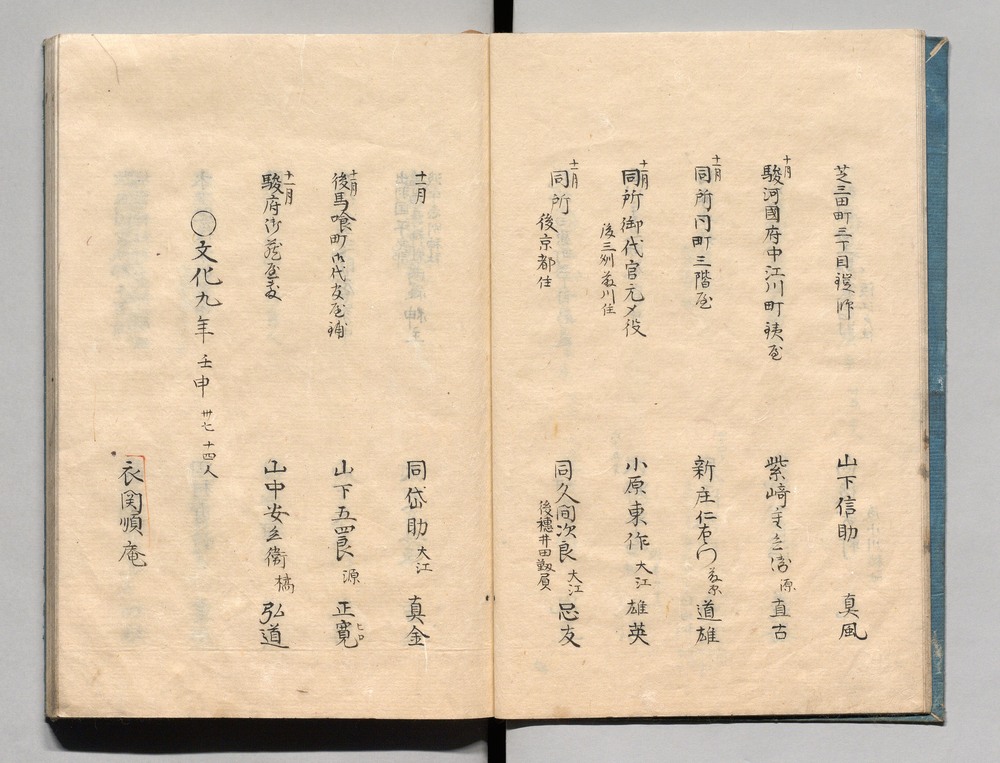 芝三田町三丁目 山下信助 真風
十月 駿河國府中江川町 紫﨑 源 直古
十一月 同所同町三階屋 新庄仁右衛門 道雄
十一月 同所御代官元〆役 後三列藤川住 小原東作 大江 雄英
十一月 同所 後京都住 同久間次良 大江 後穗井田 忠友
十一月 同岱助 大江 真金
十一月 後馬喰町 山下五四良 源 正寛 ヒロ
十一月 駿府 山中安兵衛 橘 弘道
○文化九年 壬申 卅七 十四人
衣関順庵